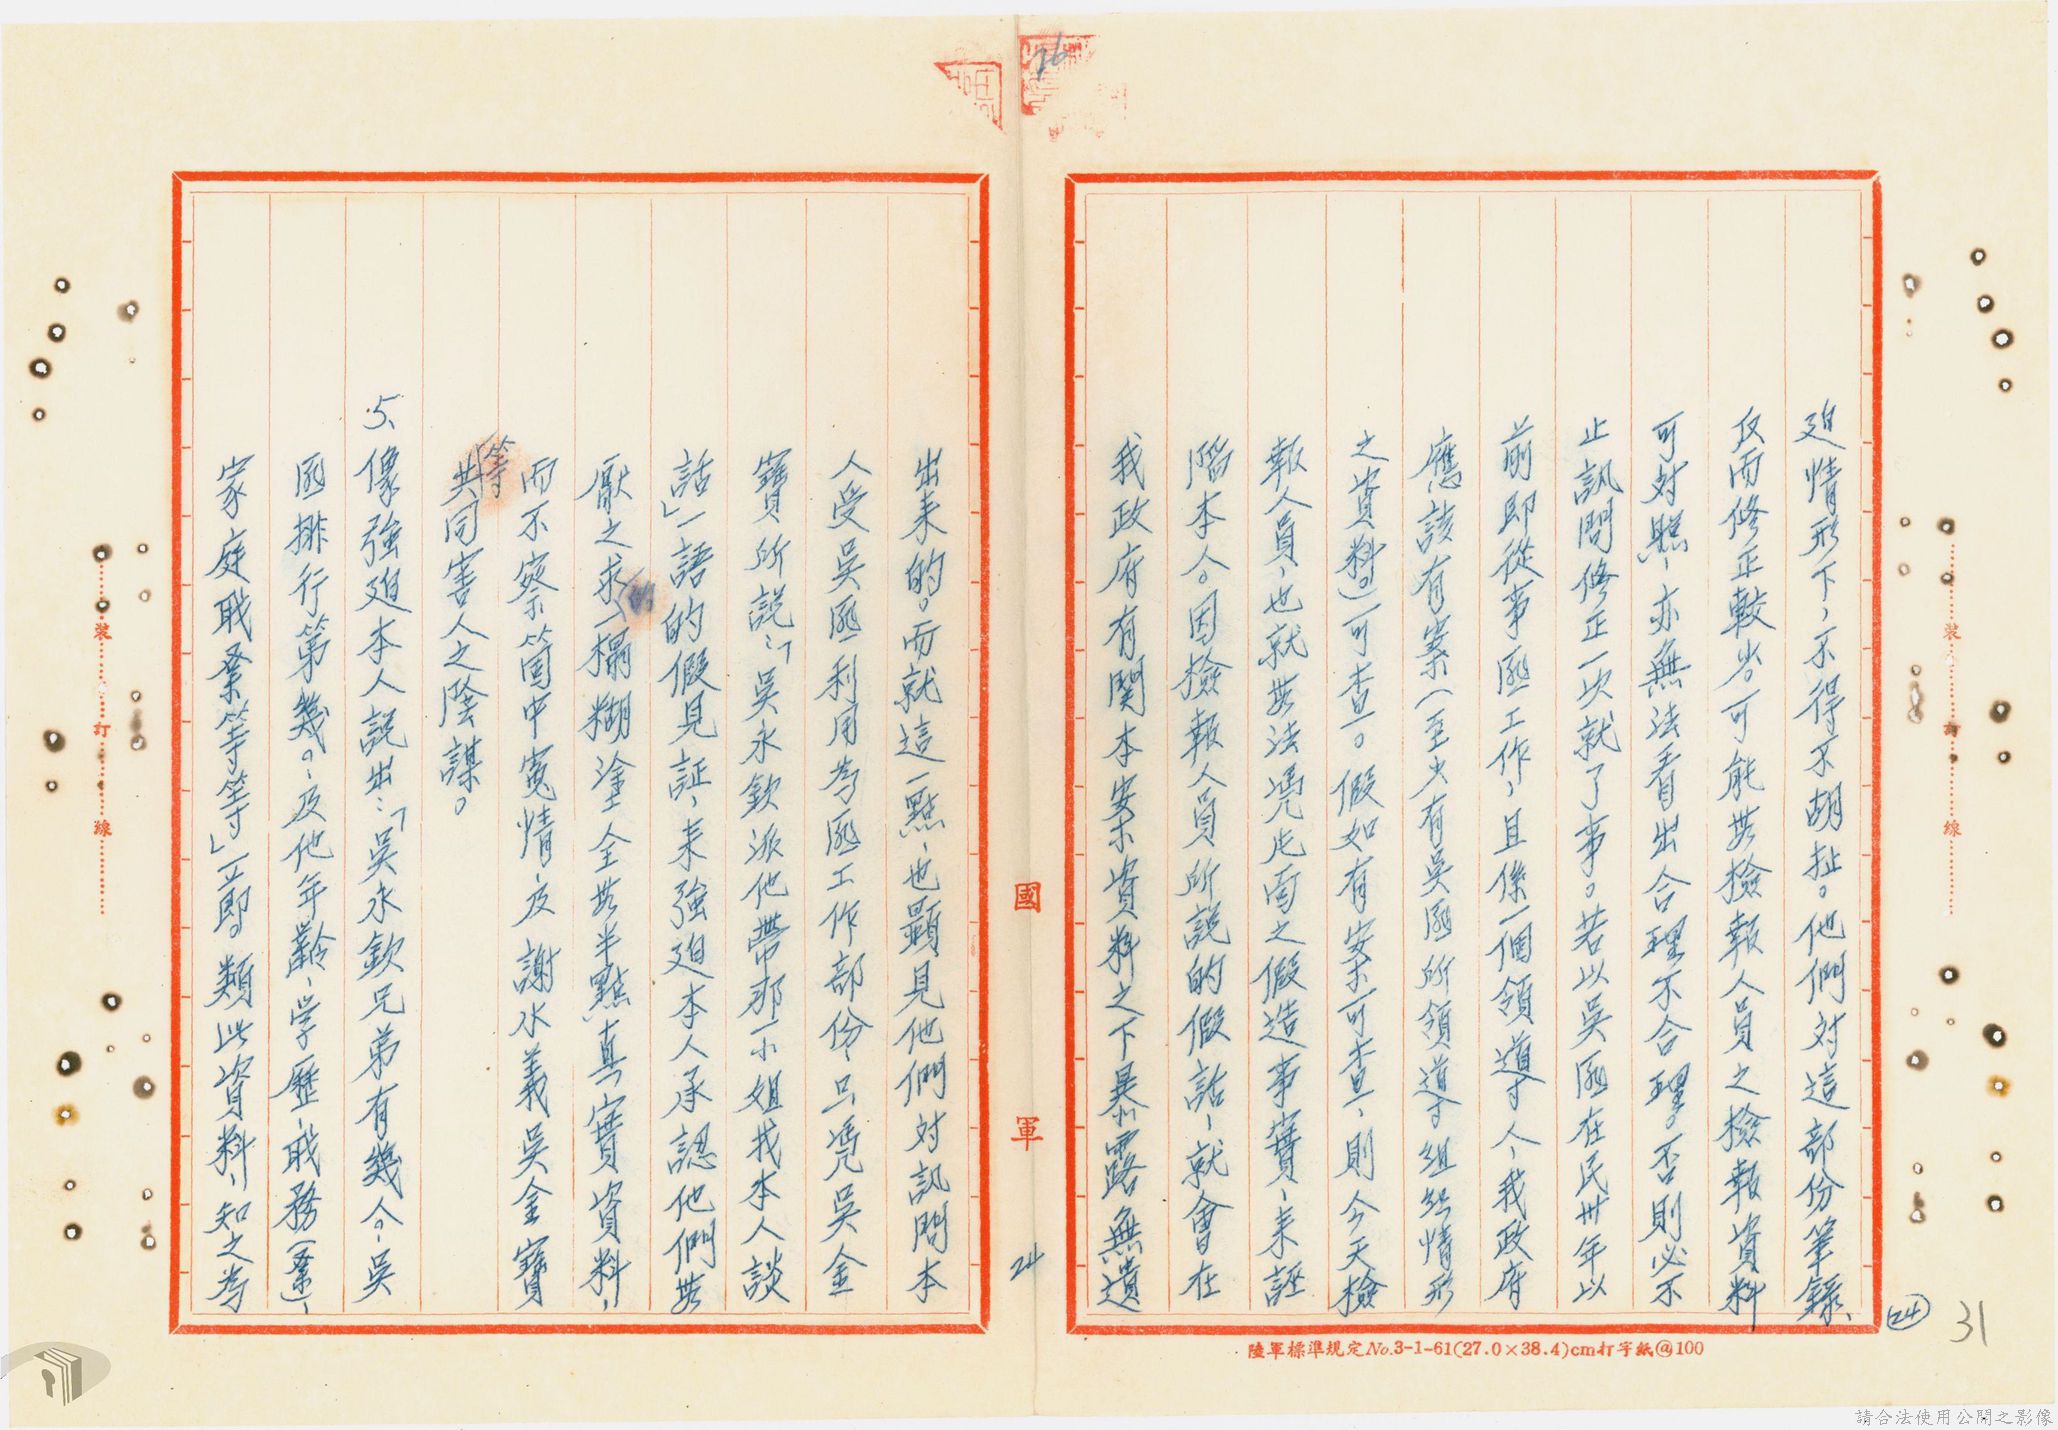 迫情形下，不得不胡扯。他們对這部份筆錄、
反而修正較少。可能無檢報人員之檢報資料
可対照，亦無法看出合理不合理。否則必不
止訊問修正一次就了事。若以吳匪在民卅年以
前即從事匪工作，且係一個領導人，我政府
應該有案（至少有吳匪所領導組織情形
之資料。）可查。假如有案可查，則今天檢
報人員，也就無法憑此而之假造事實，来誣
陷本人。因檢報人員所説的假話，就會在
我政府有関本案資料之下暴露無遺
出来的。而就這一點，也顯見他們対訊問本
人受吳匪利用為匪工作部份，只憑吳金
寶所説：「吳永欽派他帶那一小姐找本人談
話」一語的假見証，来強迫本人承認他們無
厭之求，榻糊塗全無半點真實資料，
而不察箇中寃情，及謝水義吳金寶
等
共同害人之陰謀。
5、像強迫本人説出：「吳永欽兄弟有幾人。吳
匪排行第幾。及他年齡、学歷、職務（業）、
家庭職業等等」立即。類此資料，知之為
國軍
24
24
31
26
裝
訂
線
裝
訂
線
陸軍標準規定No.3-1-61(27.0×38.4)cm打字紙@100
請合法使用公開之影像